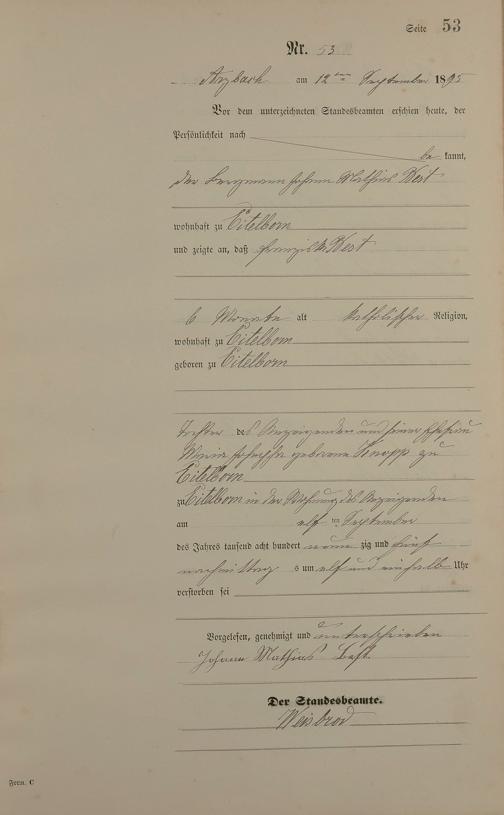 Seite 53
Nr. 53
Arzbach am 12ten September 1895
Vor dem unterzeichneten Standesbeamten erschien heute, der
Persönlichkeit nach
be kannt,
der Bergmann Johann Mathias Best
wohnhaft zu Eitelborn
und zeigte an, daß Franziska Best
6 Monate alt katholischer Religion,
wohnhaft zu Eitelborn
geboren zu Eitelborn
Tochter des Anzeigenden und seiner Ehefrau
Maria Josepha geborene Knopp zu
Eitelborn
zu Eitelborn in der Wohnung des Anzeigenden
am elf ten September
des Jahres tausend acht hundert neun zig und fünf
nachmittag s um elf und einhalb Uhr
verstorben sei
Vorgelesen, genehmigt und unterschrieben
Johann Mathias Best
Der Standesbeamte.
Weisbrod
Form. C